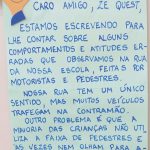 CARO AMIGO, ZÉ QUEST,
ESTAMOS ESCREVENDO PARA
LHE CONTAR SOBRE ALGUNS
COMPORTAMENTOS E ATITUDES ER-
RADAS QUE OBSERVAMOS NA RUA
DA NOSSA ESCOLA, FEITAS POR
MOTORISTAS E PEDESTRES.
NOSSA RUA TEM UM ÚNICO
SENTIDO, MAS MUITOS VEÍCULOS
TRAFEGAM NA CONTRAMÃO.
OUTRO PROBLEMA É QUE A
MAIORIA DAS CRIANÇAS NÃO UTI
LIZA A FAIXA DE PEDESTRES E
ÀS VEZES NEM OLHAM PARA